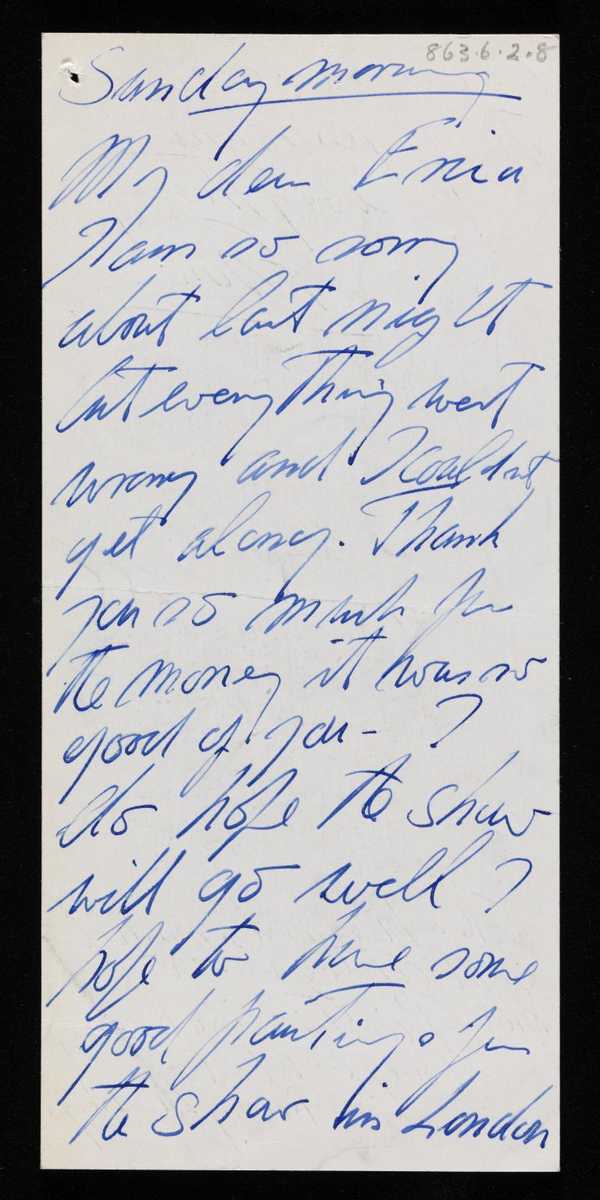 863.6.2.8
Sunday morning
My dear Erica
I am so sorry
about last night
but everything went
wrong and I couldnt
get along. Thank
you so much for
the money it was so
good of you - I
do hope the show
will go well I
hope to have some
good paintings for
the show in London